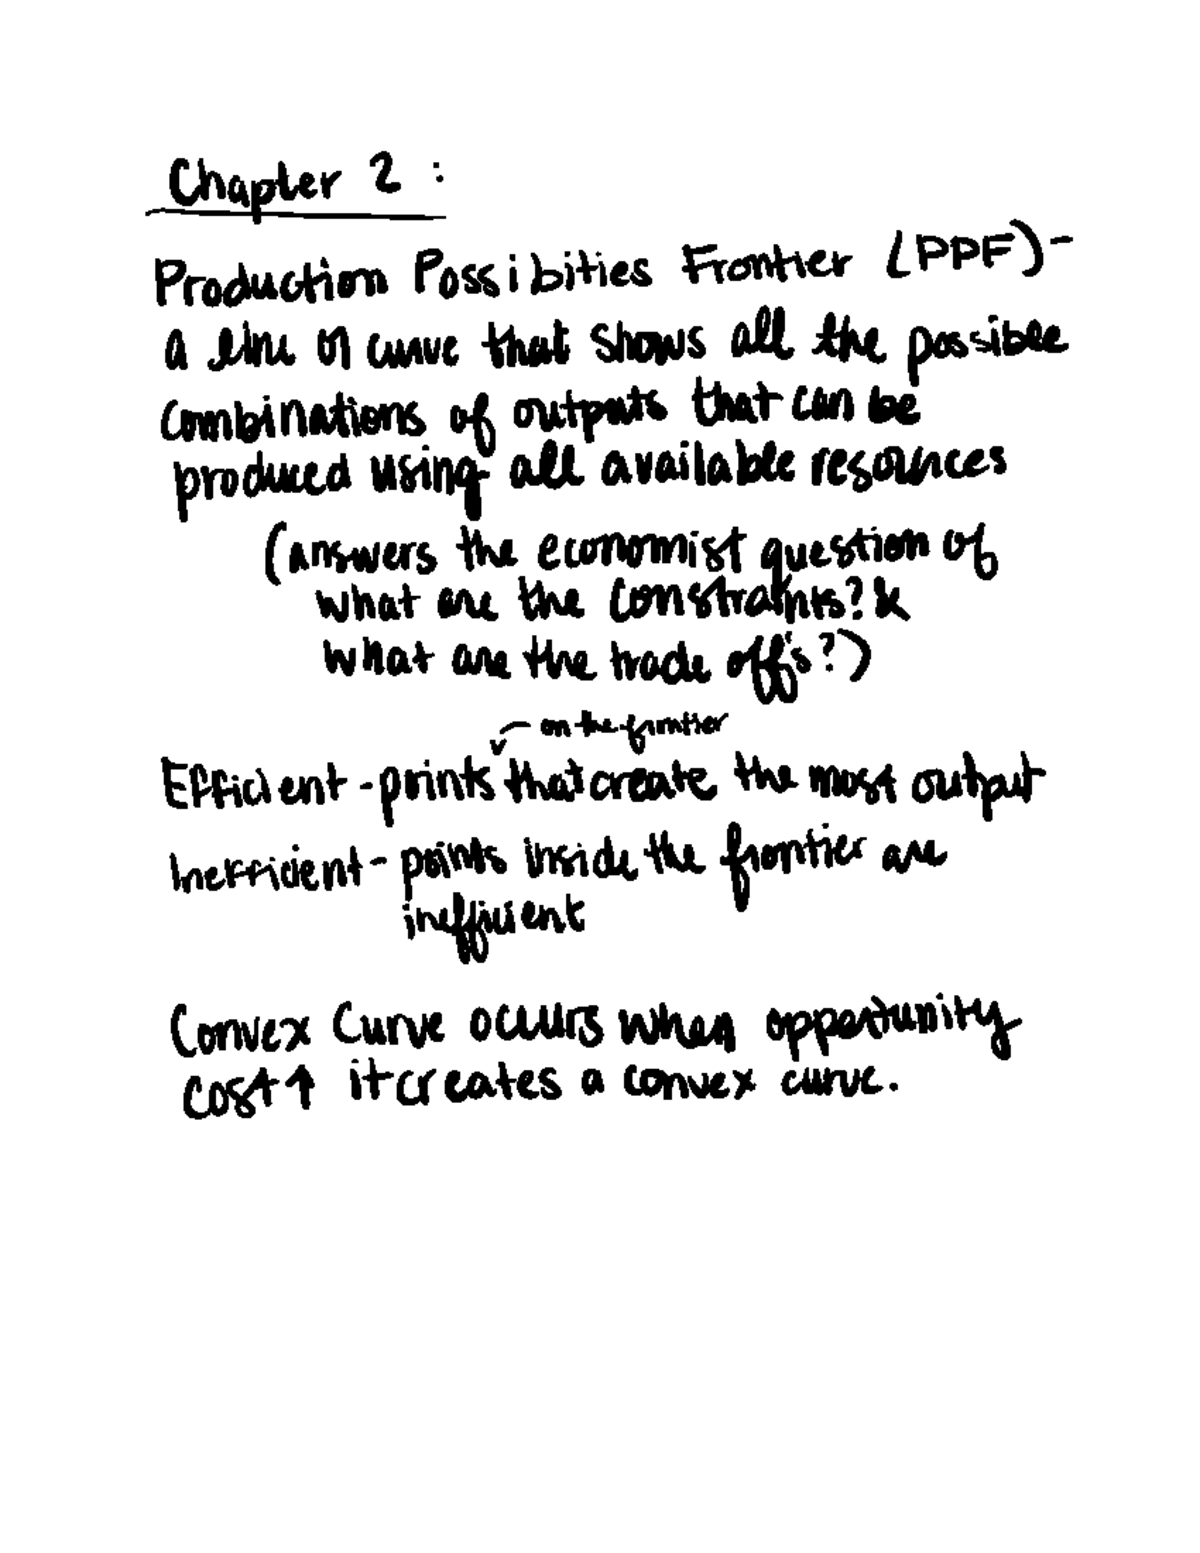 Chapter 2 :
Production Possibities Frontier (PPF)-
a line or curve that shows all the possible
combinations of outputs that can be
produced using all available resources
(answers the economist question of
what are the constraints? &
what are the trade off's?)
on the frontier
Efficient - points that create the most output
Inefficient - points inside the frontier are
inefficient
Convex Curve occurs when oppertunity
cost ↑ it creates a convex curve.